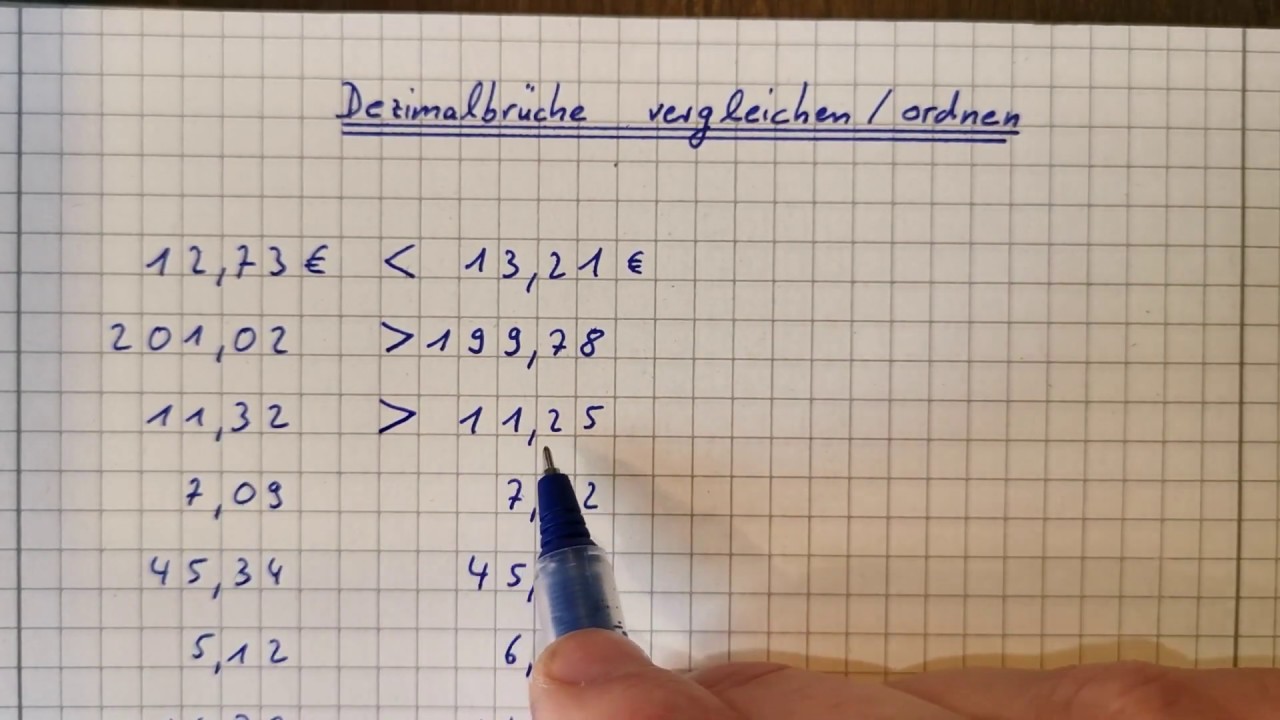 Dezimalbrüche vergleichen / ordnen
12,73 € < 13,21 €
201,02 > 199,78
11,32 > 11,25
7,09 7, 2
45,34 45,
5,12 6,